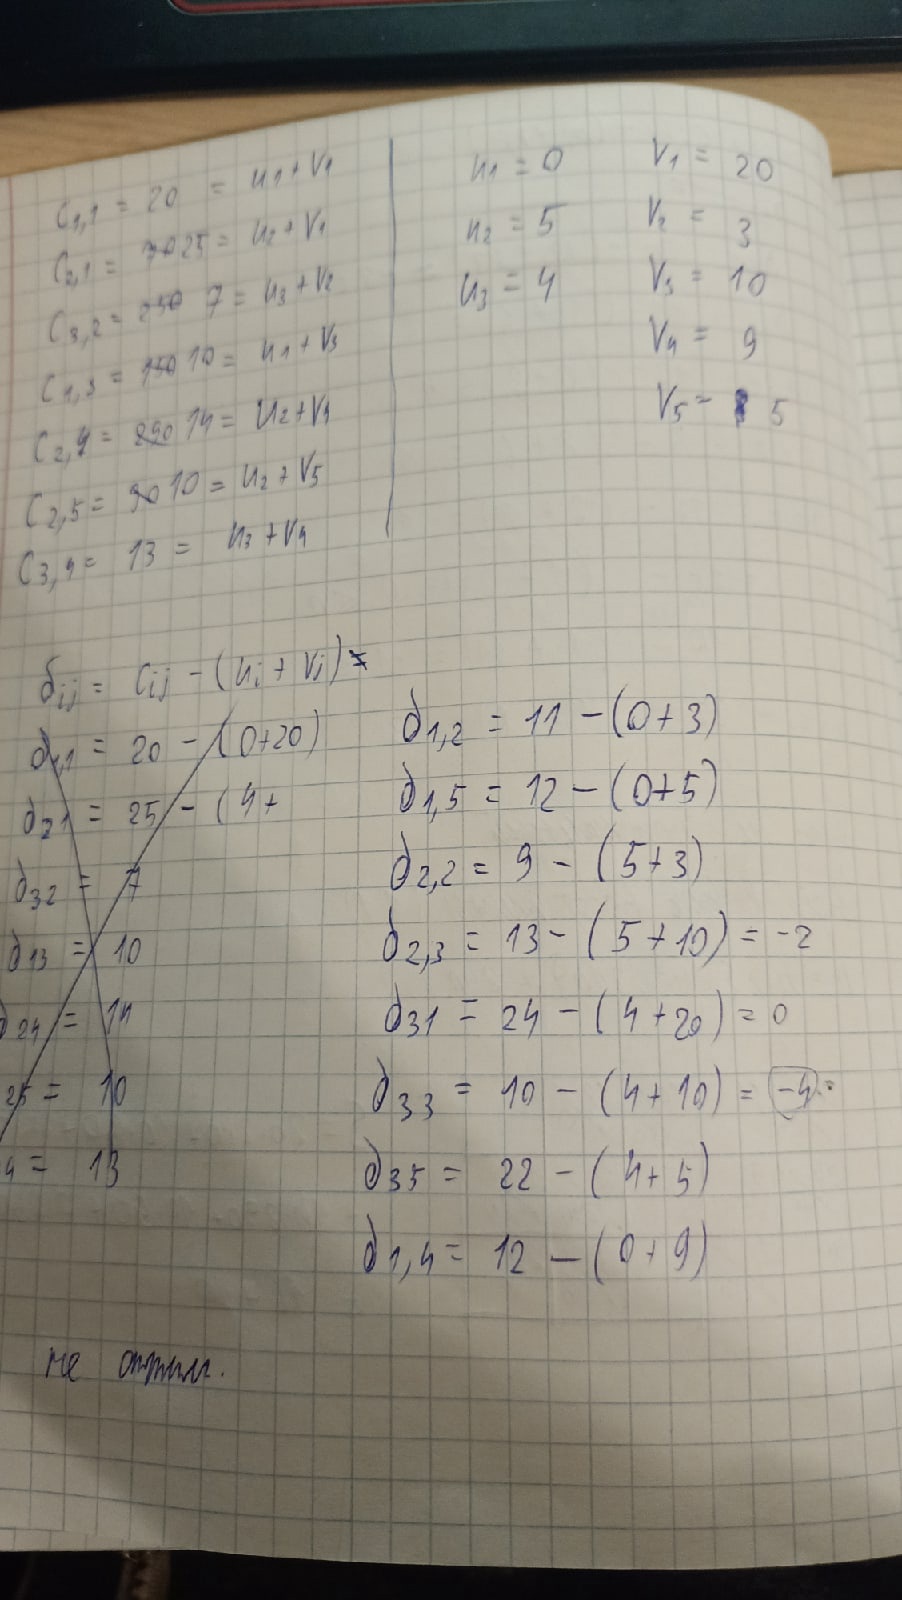 C1,1 = 20 = u1 + V1
C2,1 = 25 = u2 + V1
C3,2 = 7 = u3 + V2
C1,3 = 10 = u1 + V3
C2,4 = 14 = u2 + V4
C2,5 = 10 = u2 + V5
C3,4 = 13 = u3 + V4
u1 = 0
u2 = 5
u3 = 4
V1 = 20
V2 = 3
V3 = 10
V4 = 9
V5 = 5
δij = Cij - (ui + Vj) =
∂1,1 = 20 - (0+20)
∂21 = 25 - (4+
∂32 = 7
∂13 = 10
∂24 = 14
25 = 10
4 = 13
∂1,2 = 11 - (0+3)
∂1,5 = 12 - (0+5)
∂2,2 = 9 - (5+3)
∂2,3 = 13 - (5+10) = -2
∂31 = 24 - (4+20) = 0
∂33 = 10 - (4+10) = -4
∂35 = 22 - (4+5)
∂1,4 = 12 - (0+9)
не оптим.